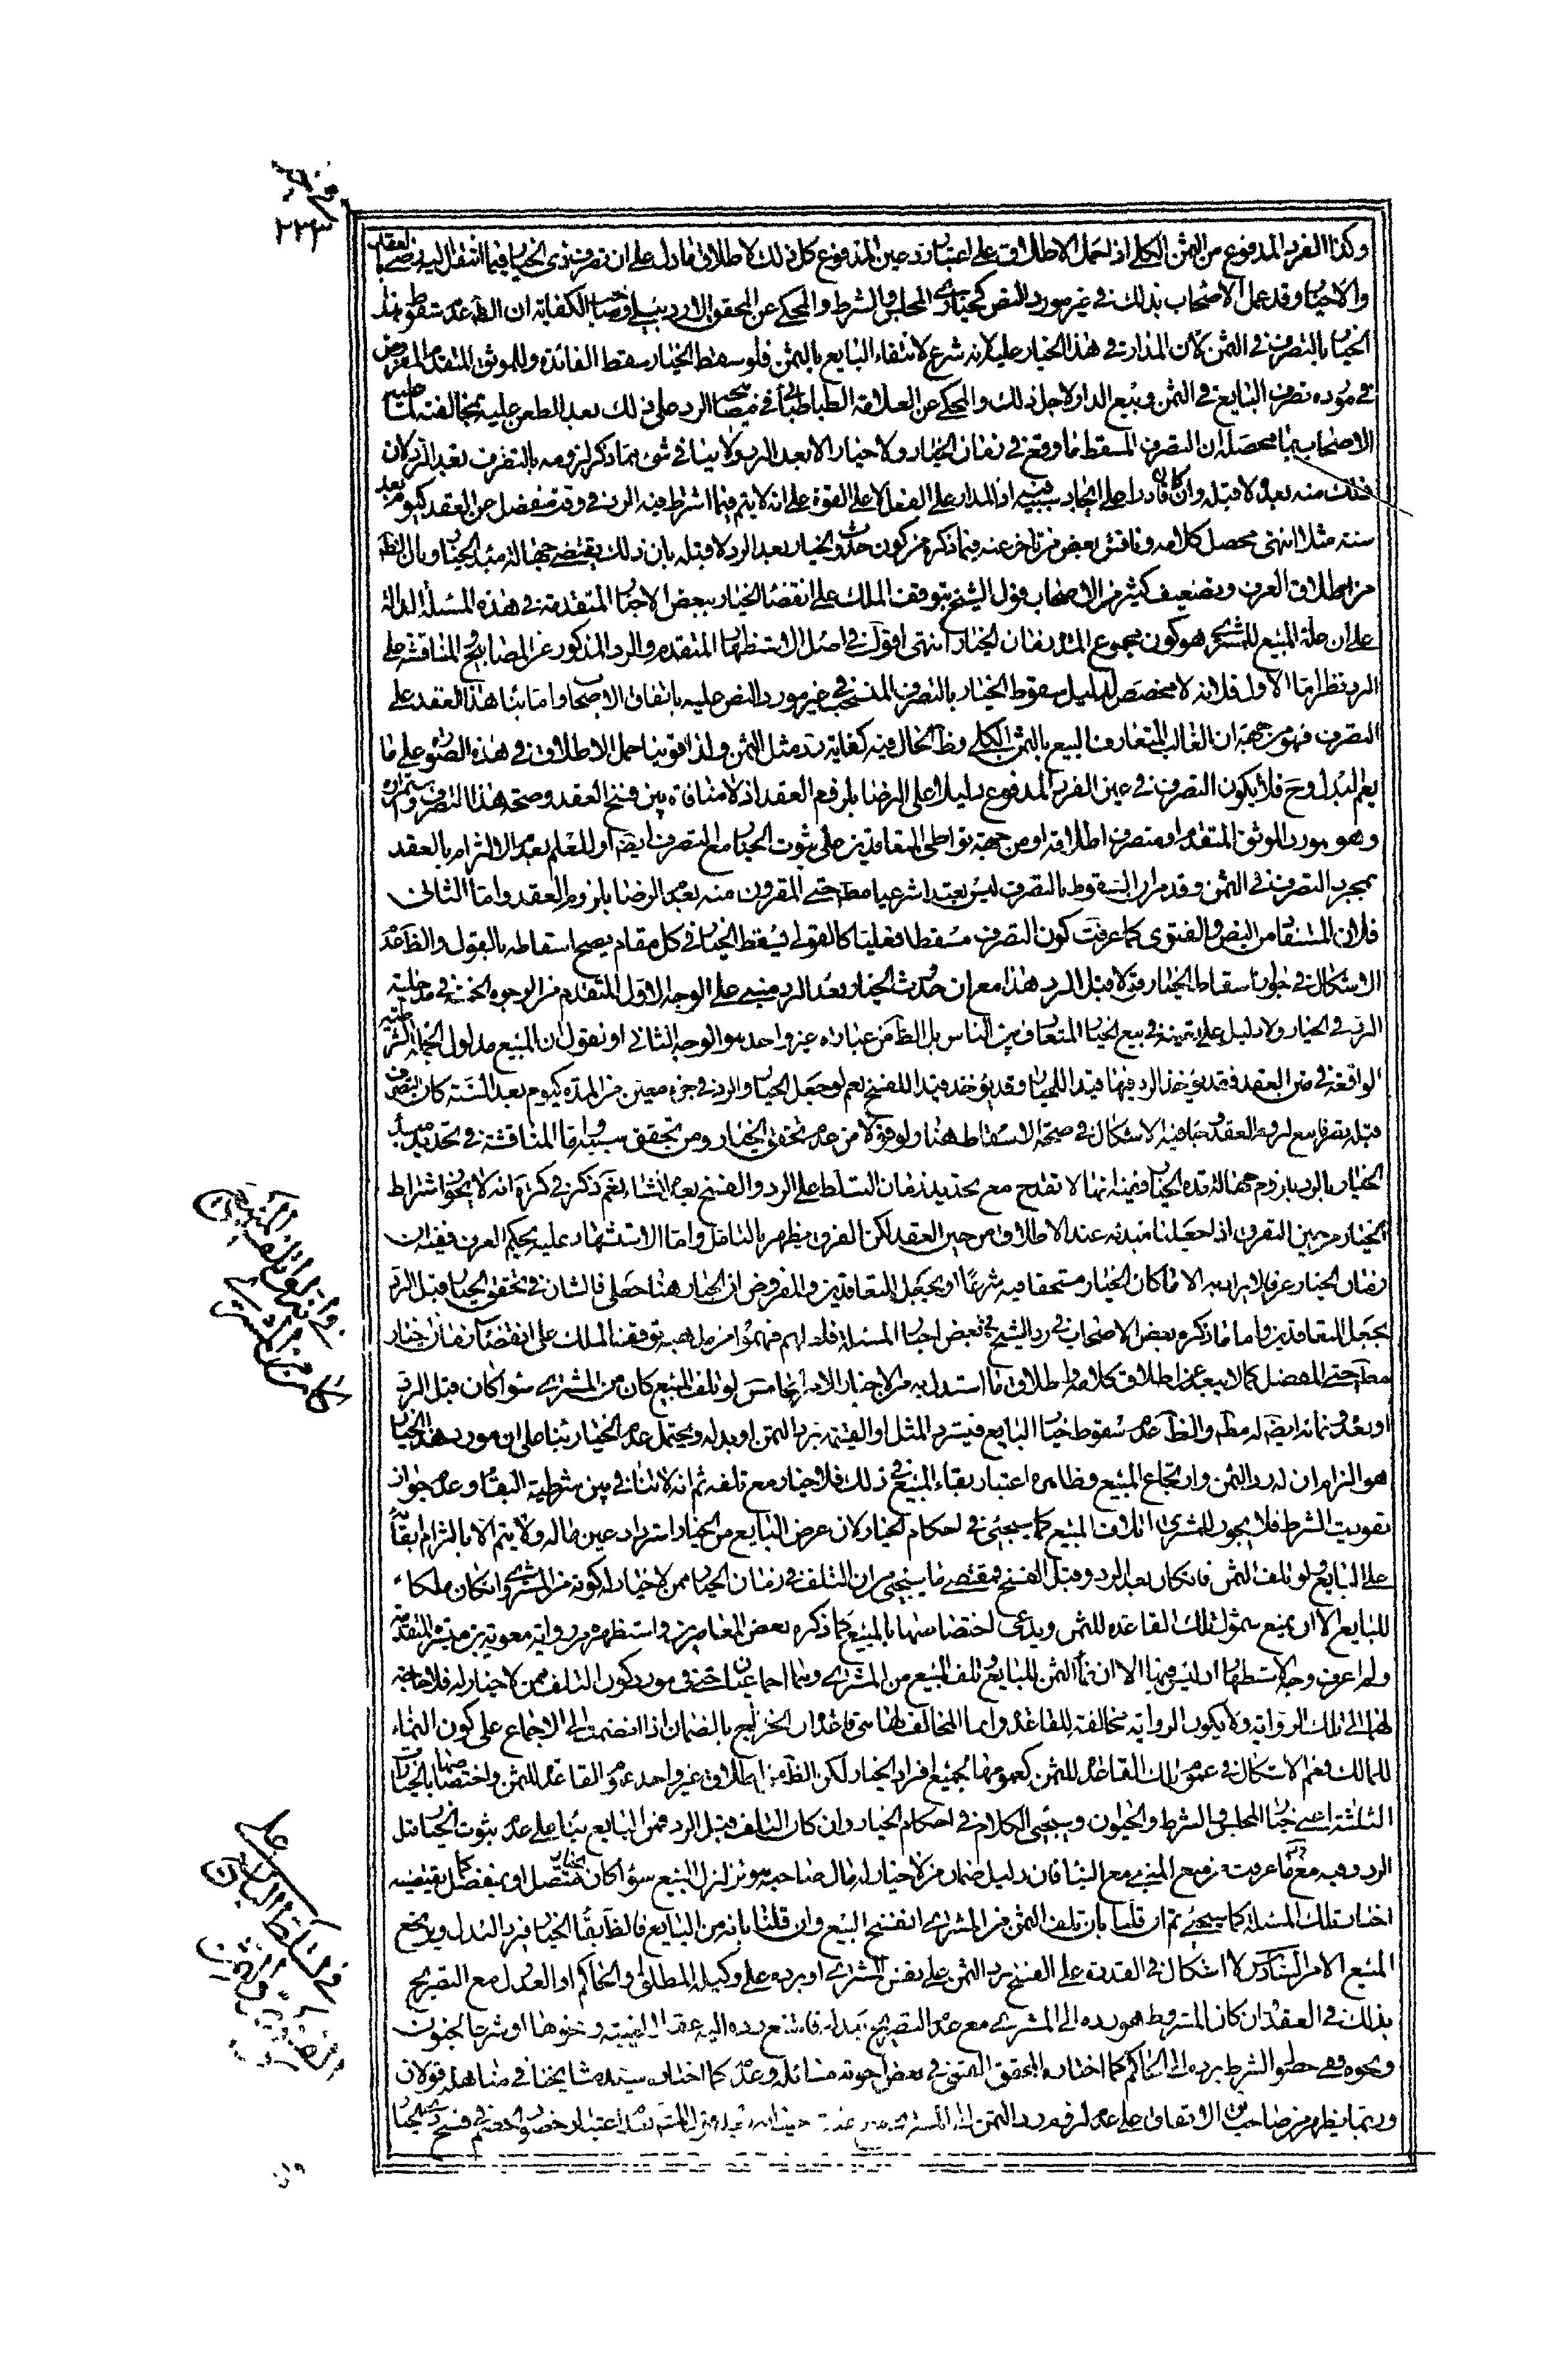 ٢٢٣
وكذا الفرد المدفوع من الثمن الكلي اذا حمل الاطلاق على اعتبار رد عين المدفوع كل ذلك لاطلاق ما دل على ان تصرف ذي الخيار فيما انتقل اليه رضى بالعقد
والاخبار وقد عمل الاصحاب بذلك في غير مورد النص كخياري المجلس والشرط والمحكي عن المحقق الاردبيلي وصاحب الكفاية ان الظ عدم سقوط هذا
الخيار بالتصرف في الثمن لان المدار في هذا الخيار عليه لانه شرع لانتفاء البايع بالثمن فلو سقط الخيار سقط الفائدة وللموثق المتقدم المفروض
في مورده تصرف البايع في الثمن وبيع الدار لاجل ذلك والمحكي عن العلامة الطباطبائي في مصابيحه الرد على ذلك بعد الطعن عليه بمخالفته لما عليه
الاصحاب بما محصله ان التصرف المسقط ما وقع في زمان الخيار ولا خيار الا بعد الرد ولا ينافي شئ مما ذكر لزومه بالتصرف بعد الرد لان
ذلك منه بعده لا قبله وان كان قادرا على ايجاد سببه فيه اذ المدار على الفعل لا على القوة على انه لا يتم فيما اشترط فيه الرد في وقت منفصل عن العقد كيوم بعد
سنة مثلا انتهى محصل كلامه وناقش بعض من تاخر عنه فيما ذكره من كون حدوث الخيار بعد الرد لا قبله بان ذلك يقتضي جهالة مبدء الخيار وبان الظ
من اطلاق العرف وتضعيف كثير من الاصحاب قول الشيخ بتوقف الملك على انقضاء الخيار ببعض الاخبار المتقدمة في هذه المسئلة الدالة
على ان غلة المبيع للمشتري هو كون مجموع المدة زمان الخيار انتهى اقول في اصل الاستظهار المتقدم والرد المذكور عن المصابيح والمناقشة على
الرد نظر اما الاول فلانه لا مخصص لدليل سقوط الخيار بالتصرف المنسحب في غير مورد النص عليه باتفاق الاصحاب واما بناء هذا العقد على
التصرف فهو من جهة ان الغالب المتعارف البيع بالثمن الكلي وظ الحال فيه كفاية رد مثل الثمن ولذا قوينا حمل الاطلاق في هذه الصورة على ما
يعم البدل وح فلا يكون التصرف في عين الفرد المدفوع دليلا على الرضا بلزوم العقد اذ لا منافاة بين فسخ العقد وصحة هذا التصرف واستمراره
وهو مورد الموثق المتقدم او منصرف اطلاقه او من جهة تواطي المتعاقدين على ثبوت الخيار مع التصرف ايضا او للعلم بعدم الالتزام بالعقد
بمجرد التصرف في الثمن وقد مر ان السقوط بالتصرف ليس تعبدا شرعيا مط حتى المقرون منه بعدم الرضا بلزوم العقد واما الثاني
فلان المستفاد من النص والفتوى كما عرفت كون التصرف مسقطا فعليا كالقولي يسقط الخيار في كل مقام يصح اسقاطه بالقول والظ عدم
الاشكال في جواز اسقاط الخيار قولا قبل الرد هذا مع ان حدوث الخيار بعد الرد مبني على الوجه الاول المتقدم من الوجوه الخمسة في مدخلية
الرد في الخيار ولا دليل على تعينه في بيع الخيار المتعارف بين الناس بل الظ من عبارة غير واحد هو الوجه الثاني او نقول ان المتبع مدلول الجملة الشرطية
الواقعة في متن العقد فقد يؤخذ الرد فيها قيدا للخيار وقد يؤخذ قيدا للفسخ نعم لو جعل الخيار والرد في جزء معين من المدة كيوم بعد السنة كان التصرف
قبله تصرفا مع لزوم العقد وجاء فيه الاشكال في صحة الاسقاط هنا ولو قولا من عدم تحقق الخيار ومن تحقق سببه واما المناقشة في تحديد مبدء
الخيار بالرد بلزوم جهالة مدة الخيار ففيه انها لا تقدح مع تحديد زمان التسلط على الرد والفسخ بعده انشاء نعم ذكر في كرة انه لا يجوز اشتراط
الخيار من حين التفرق اذا جعلنا مبدئه عند الاطلاق من حين العقد لكن الفرق يظهر بالتامل واما الاستشهاد عليه بحكم العرف ففيه ان
زمان الخيار عرفا لا يراد به الا ما كان الخيار متحققا فيه شرعا او بجعل المتعاقدين والمفروض ان الخيار هنا جعلي فالشان في تحقق الخيار قبل الرد
بجعل المتعاقدين واما ما ذكره بعض الاصحاب في رد الشيخ من بعض اخبار المسئلة فلعلهم فهموا من مذهبه توقف الملك على انقضاء زمان الخيار
مط حتى المنفصل كما لا يبعد عن اطلاق كلامه واطلاق ما استدل به من الاخبار الامر الخامس لو تلف المبيع كان من المشتري سواء كان قبل الرد
او بعده ونمائه ايضا له مط والظ عدم سقوط خيار البايع فيسترد المثل او القيمة برد الثمن او بدله ويحتمل عدم الخيار بناء على ان مورد هذا الخيار
هو الزام ان له رد الثمن وارتجاع المبيع وظاهره اعتبار بقاء المبيع في ذلك فلا خيار مع تلفه ثم انه لا تنافي بين شرطية البقاء وعدم جواز
تفويت الشرط فلا يجوز للمشتري اتلاف المبيع كما سيجئ في احكام الخيار لان غرض البايع من الخيار استرداد عين ماله ولا يتم الا بالتزام ابقائه
على البايع ولو تلف الثمن فان كان بعد الرد وقبل الفسخ فمقتضى ما سيجئ من ان التلف في زمان الخيار ممن لا خيار له كونه من المشتري وان كان ملكا
للبايع الا ان يمنع شمول تلك القاعدة للثمن ويدعى اختصاصها بالمبيع كما ذكره بعض المعاصرين واستظهره من رواية معوية بن ميسرة المتقدمة
ولم اعرف وجه الاستظهار اذ ليس فيها الا ان نماء الثمن للبايع وتلف المبيع من المشتري وهما اجماعيان حتى في مورد كون التلف ممن لا خيار له فلا حاجة
لهما الى تلك الرواية ولا يكون الرواية مخالفة للقاعدة وانما المخالف لها هي قاعدة ان الخراج بالضمان اذا انضمت الى الاجماع على كون النماء
للمالك نعم الاشكال في عموم تلك القاعدة للثمن كعمومها لجميع افراد الخيار لكن الظ من اطلاق غير واحد عموم القاعدة للثمن واختصاصها بالخيارات
الثلثة اعني خيار المجلس والشرط والحيوان وسيجئ الكلام في احكام الخيار وان كان التلف قبل الرد فمن البايع بناء على عدم ثبوت الخيار قبل
الرد وفيه مع ما عرفت من منع المبنى منع البناء فان دليل ضمان من لا خيار له مال صاحبه هو تزلزل البيع سواء كان بخيار متصل او بمنفصل كما يقتضيه
اخبار تلك المسئلة كما سيجئ ثم ان قلنا بان تلف الثمن من المشتري انفسخ البيع وان قلنا بانه من البايع فالظ بقاء الخيار فيرد البدل ويرتجع
المبيع الامر السادس لا اشكال في القدرة على الفسخ برد الثمن على نفس المشتري او برده على وكيله المطلق او الحاكم او العدول مع التصريح
بذلك في العقد وان كان المشروط هو رده الى المشتري مع عدم التصريح ببدله فامتنع رده اليه عقلا لغيبته ونحوها او شرعا لجنون
ونحوه ففي حصول الشرط برده الى الحاكم كما اختاره المحقق القمي في بعض اجوبة مسائله وعدمه كما اختاره سيد مشايخنا في مناهله قولان
وربما يظهر من صاحب الاتفاق على عدم لزوم رد الثمن الى المشتري اعتبار حضور الخصم في فسخ ذي الخيار